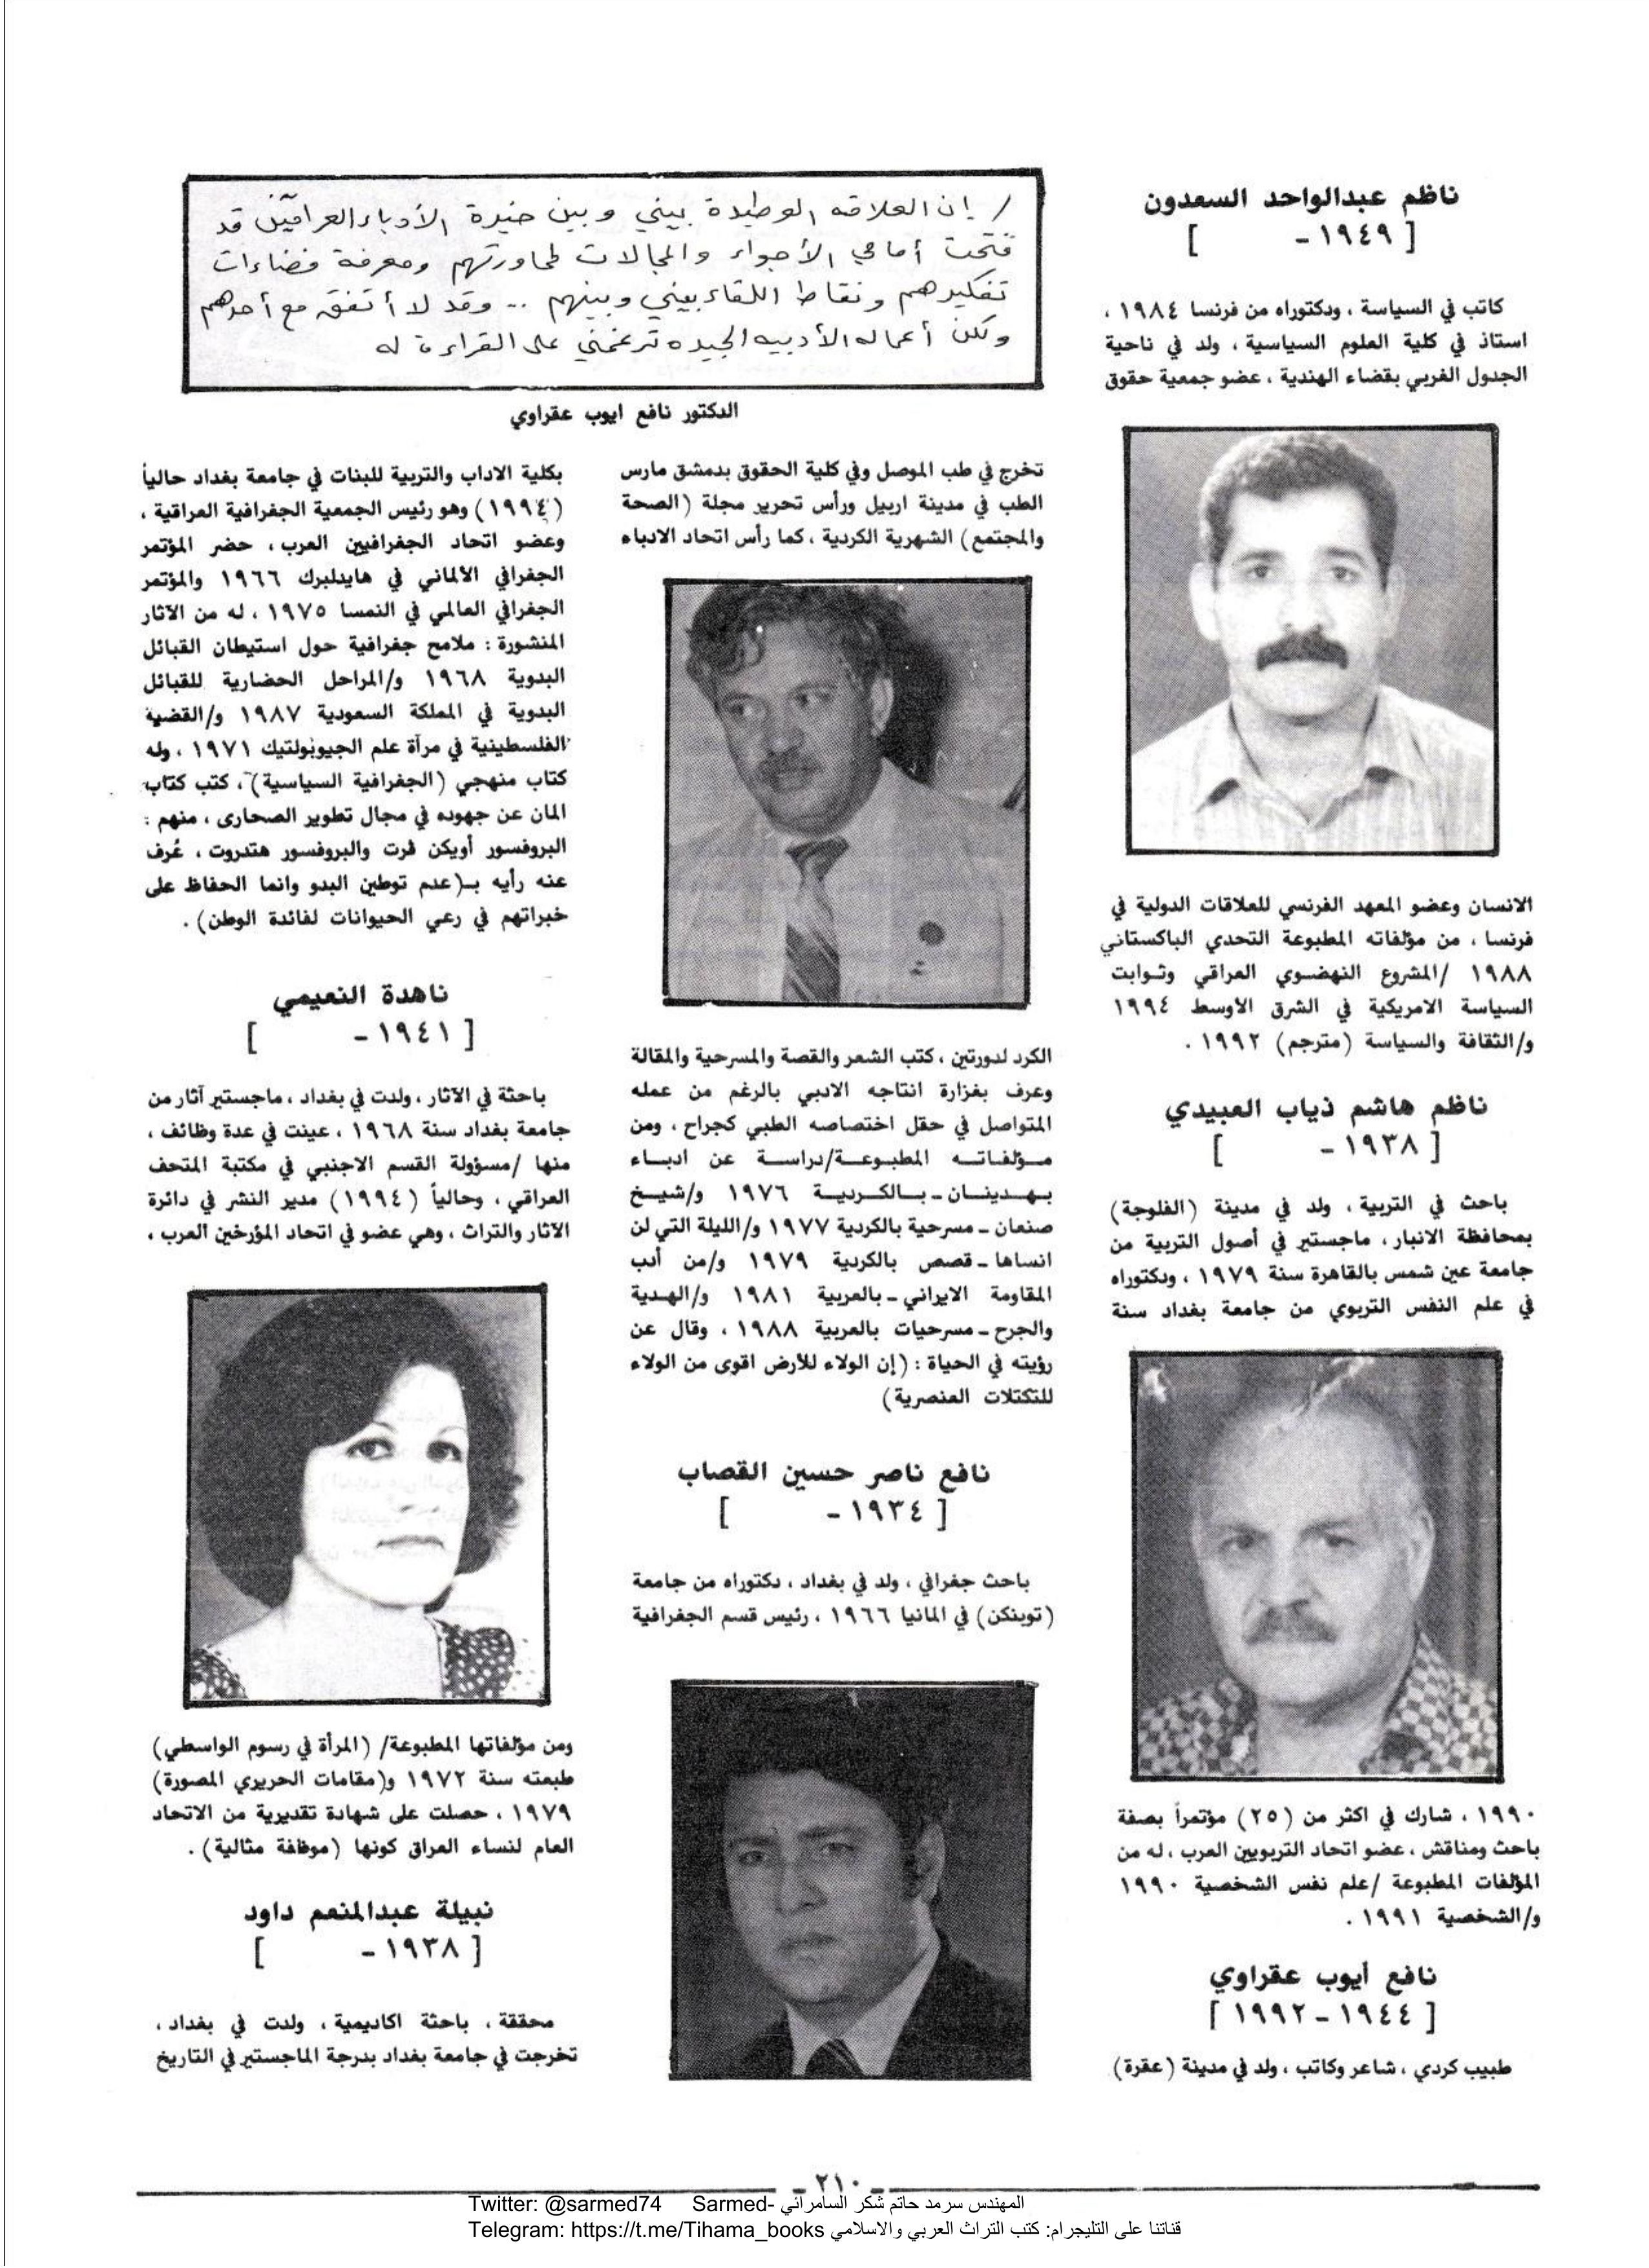 ناظم عبدالواحد السعدون
[ ١٩٤٩ -        ]
كاتب في السياسة ، ودكتوراه من فرنسا ١٩٨٤ ،
استاذ في كلية العلوم السياسية ، ولد في ناحية
الجدول الغربي بقضاء الهندية ، عضو جمعية حقوق
الانسان وعضو المعهد الفرنسي للعلاقات الدولية في
فرنسا ، من مؤلفاته المطبوعة التحدي الباكستاني
١٩٨٨ /المشروع النهضوي العراقي وثوابت
السياسة الامريكية في الشرق الأوسط ١٩٩٤
و/الثقافة والسياسة (مترجم) ١٩٩٢ .
ناظم هاشم ذياب العبيدي
[ ١٩٣٨ -        ]
باحث في التربية ، ولد في مدينة (الفلوجة)
بمحافظة الانبار ، ماجستير في أصول التربية من
جامعة عين شمس بالقاهرة سنة ١٩٧٩ ، ودكتوراه
في علم النفس التربوي من جامعة بغداد سنة
١٩٩٠ ، شارك في اكثر من (٢٥) مؤتمراً بصفة
باحث ومناقش ، عضو اتحاد التربويين العرب ، له من
المؤلفات المطبوعة /علم نفس الشخصية ١٩٩٠
و/الشخصية ١٩٩١ .
نافع أيوب عقراوي
[ ١٩٤٤ - ١٩٩٢ ]
طبيب كردي ، شاعر وكاتب ، ولد في مدينة (عقرة)
/ إن العلاقه الوطيدة بيني وبين خيرة الأدباء العراقيين قد
فتحت أمامي الأجواء والمجالات لمحاورتهم ومعرفة فضاءات
تفكيرهم ونقاط اللقاء بيني وبينهم .. وقد لا أتفق مع أحدهم
ولكن أعماله الأدبيه الجيده ترغمني على القراءة له
الدكتور نافع ايوب عقراوي
تخرج في طب الموصل وفي كلية الحقوق بدمشق مارس
الطب في مدينة اربيل ورأس تحرير مجلة (الصحة
والمجتمع) الشهرية الكردية ، كما رأس اتحاد الادباء
الكرد لدورتين ، كتب الشعر والقصة والمسرحية والمقالة
وعرف بغزارة انتاجه الادبي بالرغم من عمله
المتواصل في حقل اختصاصه الطبي كجراح ، ومن
مؤلفاته المطبوعة/دراسة عن ادباء
بهدينان ـ بالكردية ١٩٧٦ و/شيخ
صنعان ـ مسرحية بالكردية ١٩٧٧ و/الليلة التي لن
انساها ـ قصص بالكردية ١٩٧٩ و/من أدب
المقاومة الايراني ـ بالعربية ١٩٨١ و/الهدية
والجرح ـ مسرحيات بالعربية ١٩٨٨ ، وقال عن
رؤيته في الحياة : (إن الولاء للأرض اقوى من الولاء
للتكتلات العنصرية)
نافع ناصر حسين القصاب
[ ١٩٣٤ -        ]
باحث جغرافي ، ولد في بغداد ، دكتوراه من جامعة
(توبنكن) في المانيا ١٩٦٦ ، رئيس قسم الجغرافية
بكلية الاداب والتربية للبنات في جامعة بغداد حالياً
(١٩٩٤) وهو رئيس الجمعية الجغرافية العراقية ،
وعضو اتحاد الجغرافيين العرب ، حضر المؤتمر
الجغرافي الألماني في هايدلبرك ١٩٦٦ والمؤتمر
الجغرافي العالمي في النمسا ١٩٧٥ ، له من الآثار
المنشورة : ملامح جغرافية حول استيطان القبائل
البدوية ١٩٦٨ و/المراحل الحضارية للقبائل
البدوية في المملكة السعودية ١٩٨٧ و/القضية
الفلسطينية في مرآة علم الجيوبولتيك ١٩٧١ ، وله
كتاب منهجي (الجغرافية السياسية) ، كتب كتاب
المان عن جهوده في مجال تطوير الصحارى ، منهم :
البروفسور أويكن فرت والبروفسور هتدروت ، عُرف
عنه رأيه بـ(عدم توطين البدو وانما الحفاظ على
خبراتهم في رعي الحيوانات لفائدة الوطن) .
ناهدة النعيمي
[ ١٩٤١ -        ]
باحثة في الآثار ، ولدت في بغداد ، ماجستير آثار من
جامعة بغداد سنة ١٩٦٨ ، عينت في عدة وظائف ،
منها /مسؤولة القسم الاجنبي في مكتبة المتحف
العراقي ، وحالياً (١٩٩٤) مدير النشر في دائرة
الآثار والتراث ، وهي عضو في اتحاد المؤرخين العرب ،
ومن مؤلفاتها المطبوعة/ (المرأة في رسوم الواسطي)
طبعته سنة ١٩٧٢ و(مقامات الحريري المصورة)
١٩٧٩ ، حصلت على شهادة تقديرية من الاتحاد
العام لنساء العراق كونها (موظفة مثالية) .
نبيلة عبدالمنعم داود
[ ١٩٣٨ -        ]
محققة ، باحثة اكاديمية ، ولدت في بغداد ،
تخرجت في جامعة بغداد بدرجة الماجستير في التاريخ
- ٢١٠ -
Twitter: @sarmed74 Sarmed- المهندس سرمد حاتم شكر السامرائي
Telegram: https://t.me/Tihama_books قناتنا على التليجرام: كتب التراث العربي والاسلامي